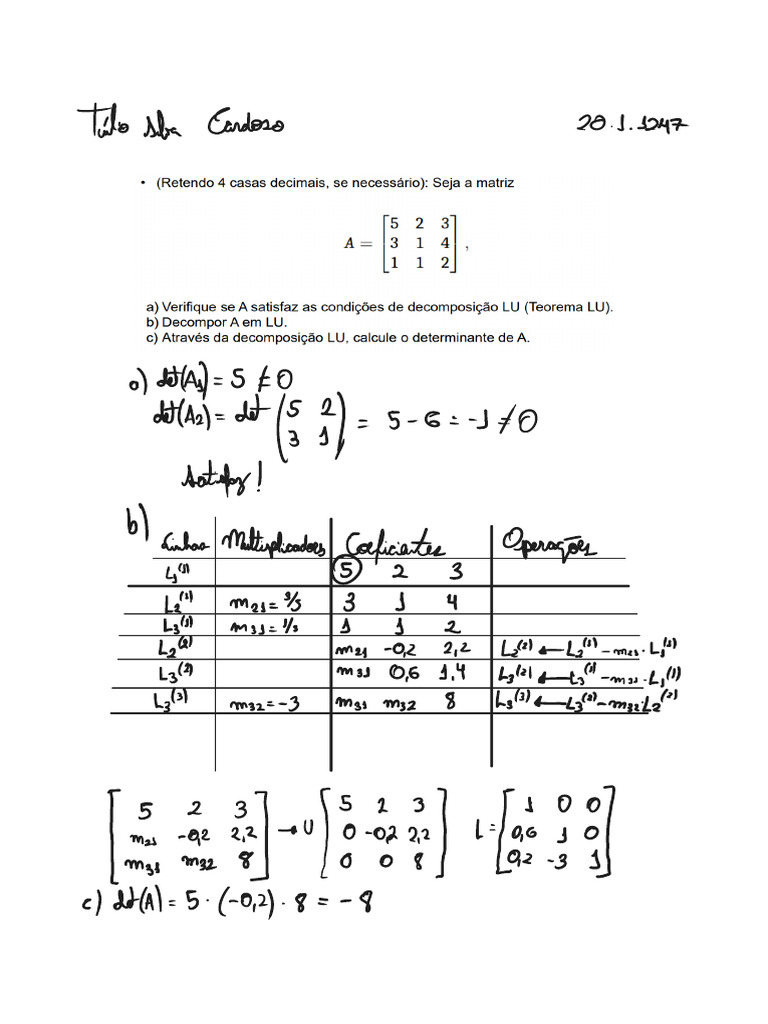 Túlio Silva Cardoso 20.1.1247
• (Retendo 4 casas decimais, se necessário): Seja a matriz
A = [5 2 3
3 1 4
1 1 2],
a) Verifique se A satisfaz as condições de decomposição LU (Teorema LU).
b) Decompor A em LU.
c) Através da decomposição LU, calcule o determinante de A.
a) det(A₁) = 5 ≠ 0
det(A2) = det (5 2
3 1) = 5 - 6 = -1 ≠ 0
Satisfaz!
b)
Linhas Multiplicadores Coeficientes Operações
L₁⁽¹⁾ 5 2 3
L₂⁽¹⁾ m₂₁ = 3/5 3 1 4
L₃⁽¹⁾ m₃₁ = 1/5 1 1 2
L₂⁽²⁾ m₂₁ -0,2 2,2 L₂⁽²⁾ ← L₂⁽¹⁾ - m₂₁ · L₁⁽¹⁾
L₃⁽²⁾ m₃₁ 0,6 1,4 L₃⁽²⁾ ← L₃⁽¹⁾ - m₃₁ · L₁⁽¹⁾
L₃⁽³⁾ m₃₂ = -3 m₃₁ m₃₂ 8 L₃⁽³⁾ ← L₃⁽²⁾ - m₃₂ · L₂⁽²⁾
[5 2 3 [5 2 3 [1 0 0
m₂₁ -0,2 2,2 → U 0 -0,2 2,2 L = 0,6 1 0
m₃₁ m₃₂ 8] 0 0 8] 0,2 -3 1]
c) det(A) = 5 · (-0,2) · 8 = -8